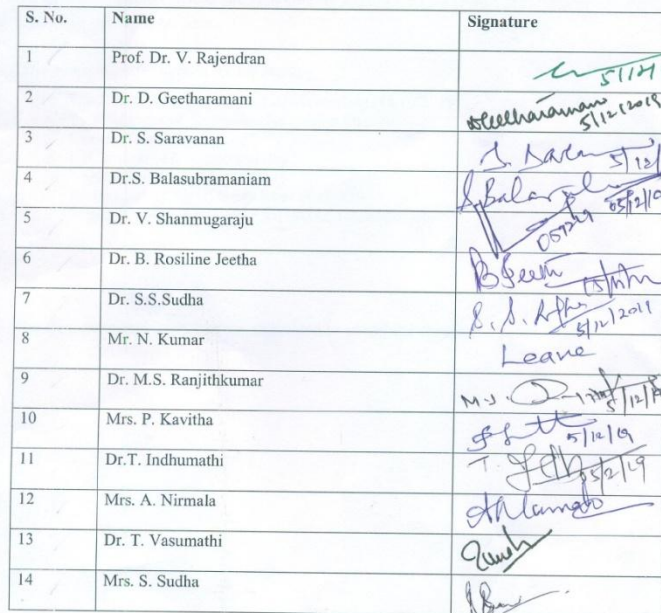 S. No. Name Signature
1 Prof. Dr. V. Rajendran
2 Dr. D. Geetharamani 5/12/2019
3 Dr. S. Saravanan 5/12/
4 Dr.S. Balasubramaniam 05/12/19
5 Dr. V. Shanmugaraju
6 Dr. B. Rosiline Jeetha
7 Dr. S.S.Sudha 5/12/2019
8 Mr. N. Kumar Leave
9 Dr. M.S. Ranjithkumar 5/12/19
10 Mrs. P. Kavitha 5/12/19
11 Dr.T. Indhumathi
12 Mrs. A. Nirmala
13 Dr. T. Vasumathi
14 Mrs. S. Sudha